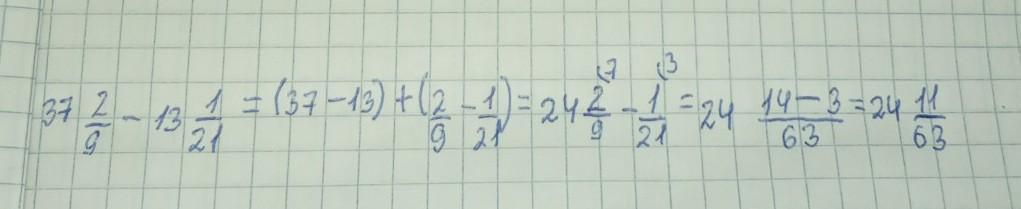 37 2/9 − 13 1/21 = (37 − 13) + (2/9 − 1/21) = 24 2/9 (7 − 1/21 (3 = 24 (14 − 3)/63 = 24 11/63